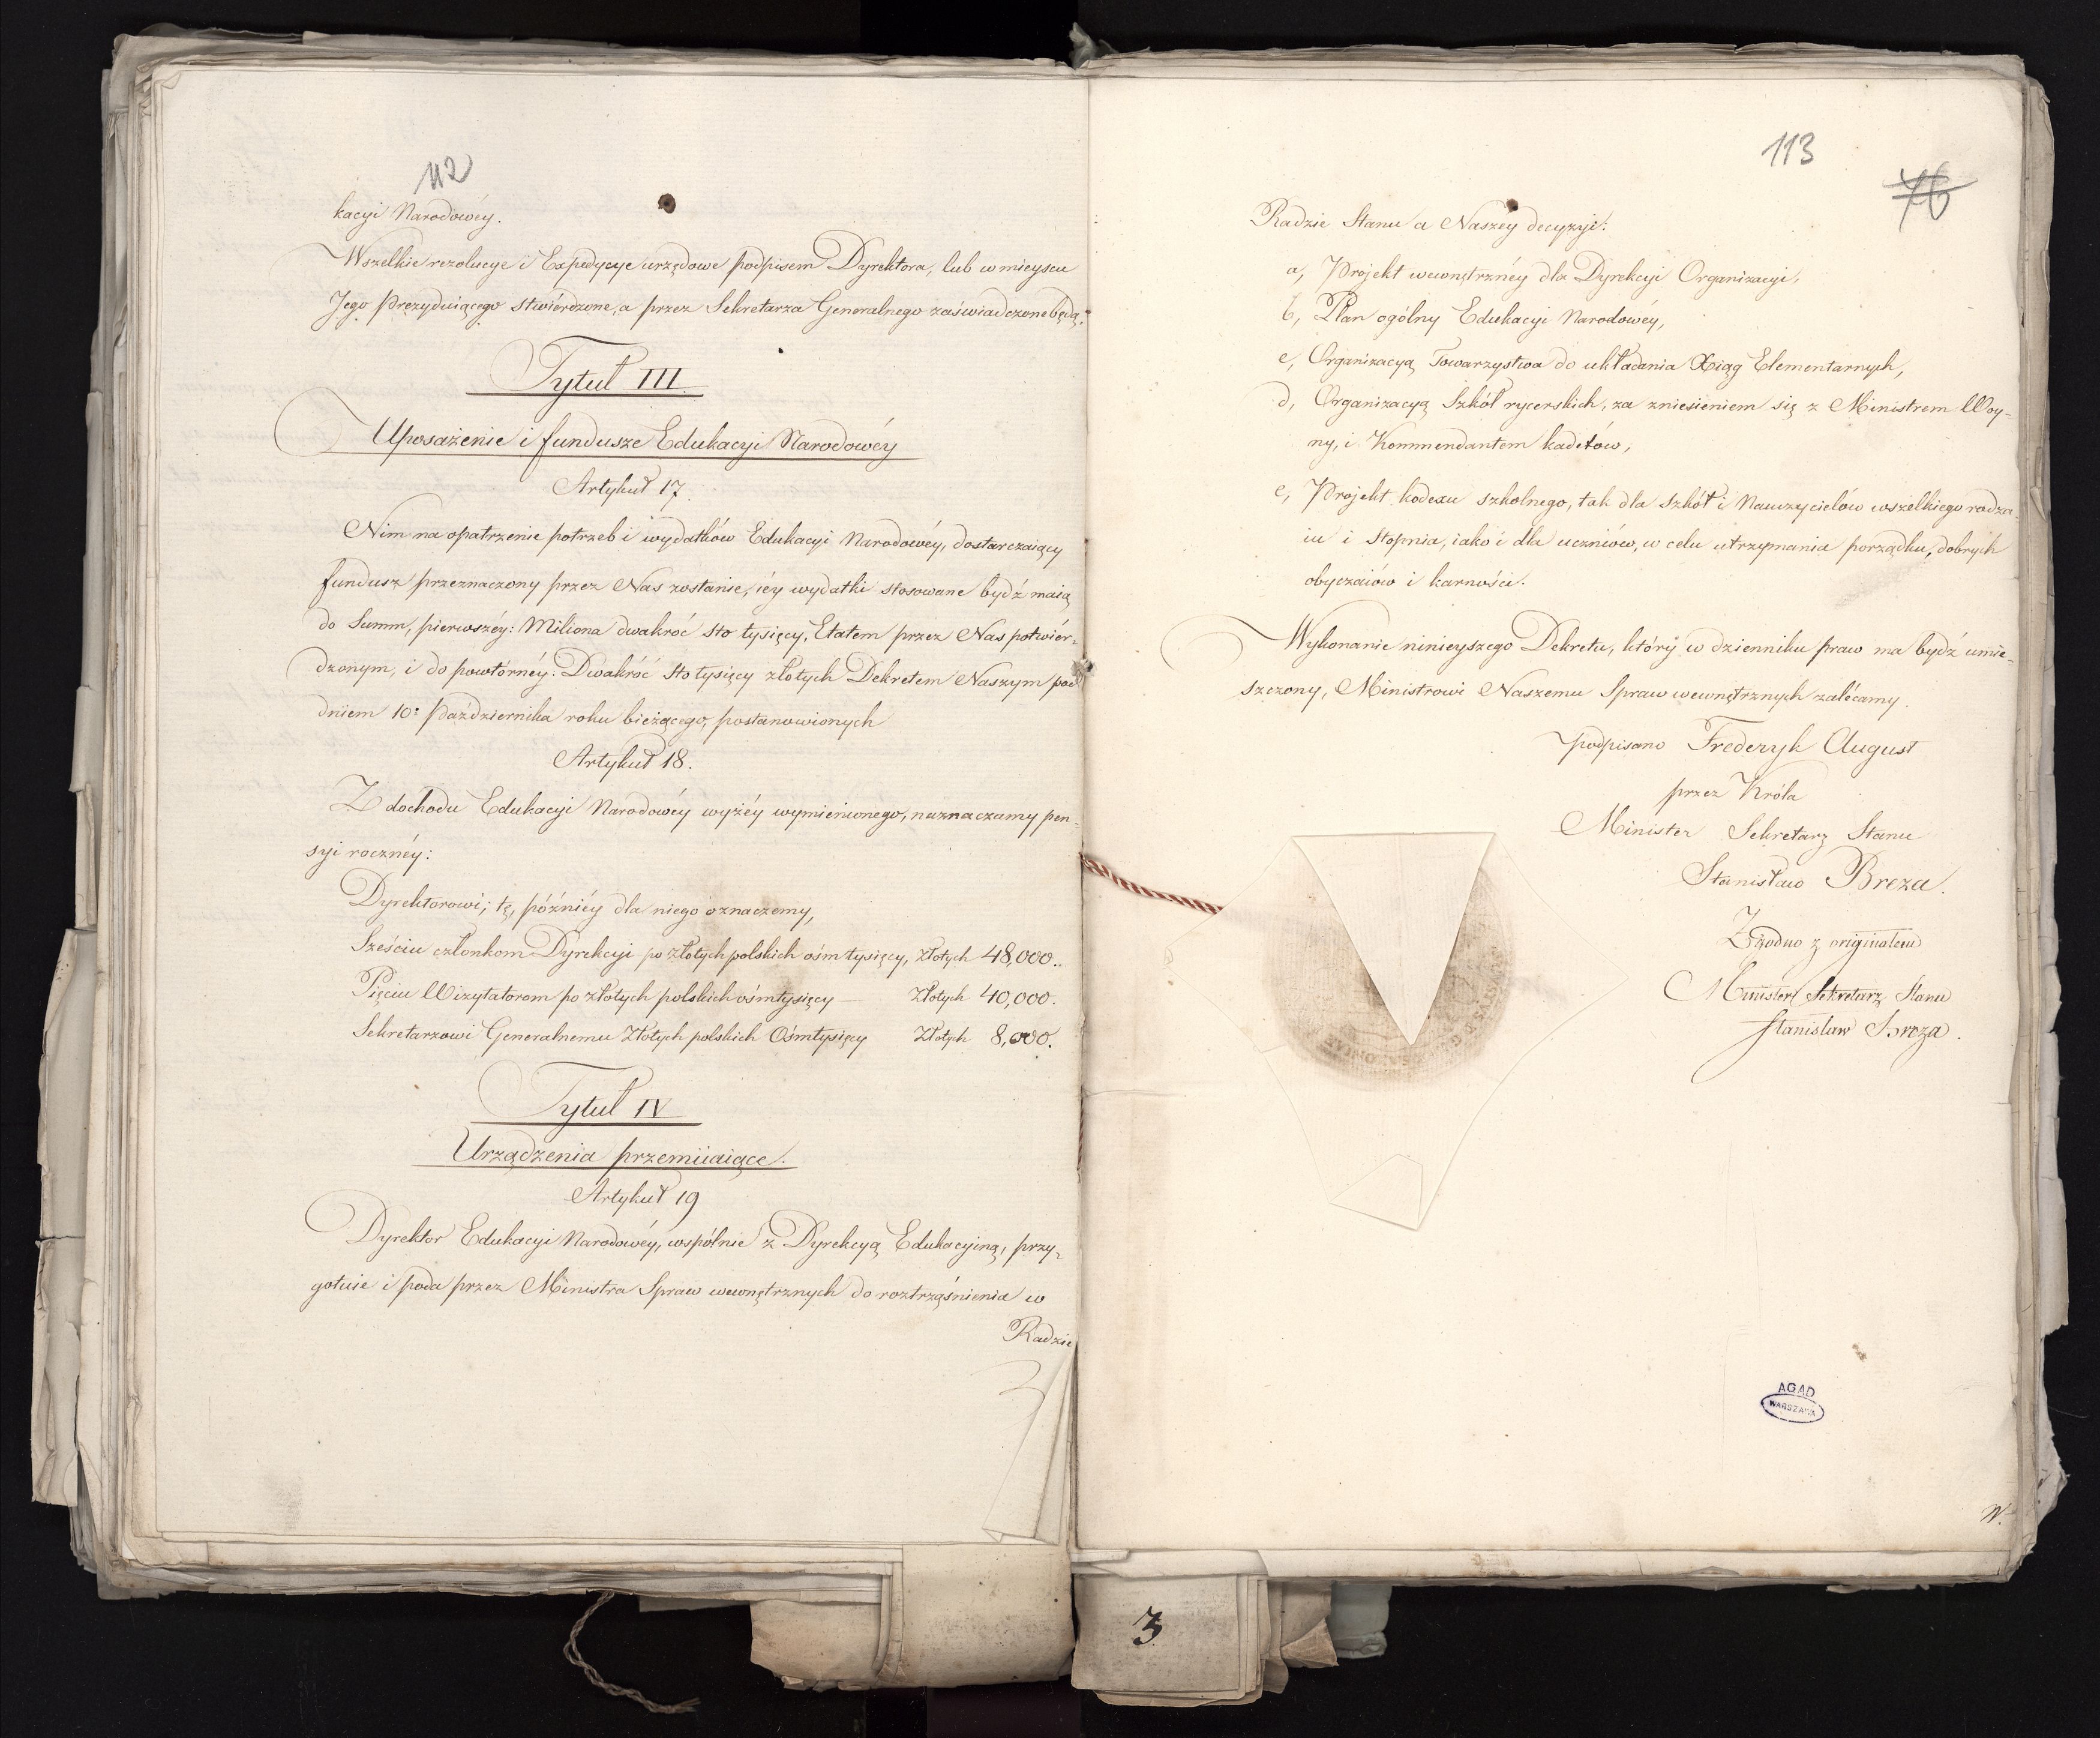 112
kacyi Narodowéy.
Wszelkie rezolucye i Expedycye urzędowe podpisem Dyrektora, lub w mieyscu
Jego Prezyduiącego stwiérdzone, a przez Sekretarza Generalnego zaświadczone będą.
Tytuł III.
Uposażenie i fundusze Edukacyi Narodowéy
Artykuł 17.
Nim na opatrzenie potrzeb i wydatków Edukacyi Narodowéy, dostarczaiący
fundusz przeznaczony przez Nas zostanie, iéy wydatki stosowane bydź maią
do Summ, pierwszéy: Miliona dwakroć sto tysięcy, Etatem przez Nas potwiér-
dzonym, i do powtórnéy: Dwakróć sto tysięcy złotych Dekretem Naszym pod
dniem 10: Października roku bieżącego, postanowionych
Artykuł 18.
Z dochodu Edukacyi Narodowéy wyżéy wymienionego, naznaczamy pen-
syi rocznéy:
Dyrektorowi; tę, późniéy dla niego oznaczemy,
Sześciu członkom Dyrekcyi po złotych polskich ośm tysięcy, złotych 48,000..
Pięciu Wizytatorom po złotych polskich ośmtysięcy — Złotych 40,000.
Sekretarzowi Generalnemu Złotych polskich Ośmtysięcy Złotych 8,000.
Tytuł IV
Urządzenia przemiiaiące.
Artykuł 19
Dyrektor Edukacyi Narodowéy, wspólnie z Dyrekcyą Edukacyiną, przy-
gotuie i poda przez Ministra Spraw wewnętrznych do roztrząśnienia w
Radzie
113
76
Radzie Stanu a Naszéy decyzyi:
a, Projekt wewnętrznéy dla Dyrekcyi Organizacyi,
b, Plan ogólny Edukacyi Narodowéy,
c, Organizacyą Towarzystwa do układania Xiąg Elementarnych,
d, Organizacyą Szkół rycerskich, za zniesieniem się z Ministrem Woy-
ny, i Kommendantem kadetów,
e, Projekt kodexu szkolnego, tak dla szkół i Nauczycielów wszelkiego rodza-
iu i stopnia, iako i dla uczniów, w celu utrzymania porządku, dobrych
obyczaiów i karności.
Wykonanie ninieyszego Dekretu, który w dzienniku praw ma bydź umie-
szczony, Ministrowi Naszemu Spraw wewnętrznych zalécamy.
podpisano Frederyk August
przez Króla
Minister Sekretarz Stanu
Stanisław Breza.
Zgodno z originałem
Minister Sekretarz Stanu
Stanisław Breza.
AGAD
WARSZAWA
W.
3